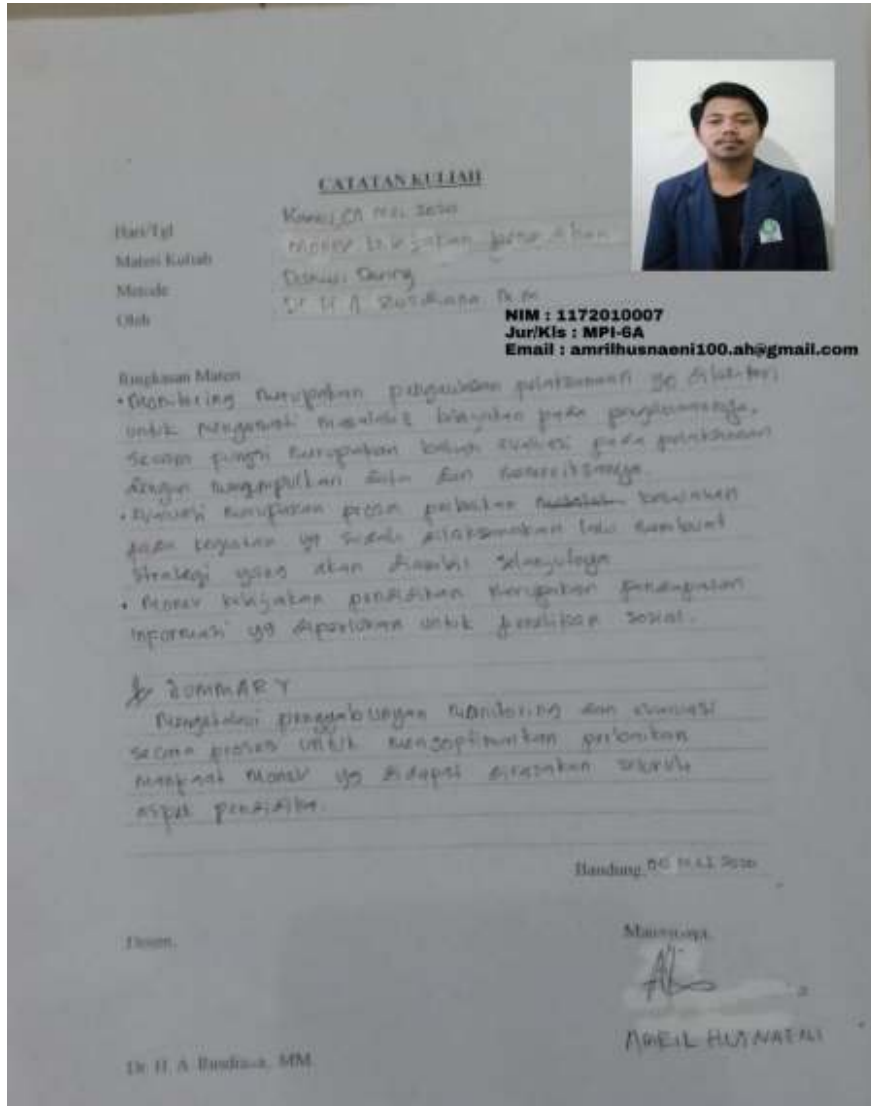 CATATAN KULIAH
Hari/Tgl
Kamis, Mei 2020
Materi Kuliah
Monev kebijakan
Metode
Diskusi Daring
Oleh
Dr H A Rusdiana M.M
NIM : 1172010007
Jur/Kls : MPI-6A
Email : amrilhusnaeni100.ah@gmail.com
Ringkasan Materi
• Monitoring merupakan pengawasan pelaksanaan yg
untuk mengamati masalah kebijakan pada
secara fungsi merupakan evaluasi pada pelaksanaan
dengan mengumpulkan data dan
• Evaluasi merupakan proses perbaikan kebijakan
pada kegiatan yg sudah dilaksanakan lalu membuat
strategi yang akan diambil selanjutnya
• Monev kebijakan pendidikan merupakan
informasi yg diperlukan untuk penelitian sosial.
SUMMARY
penggabungan monitoring dan evaluasi
secara proses untuk mengoptimalkan perbaikan
manfaat monev yg didapat dirasakan seluruh
aspek
Bandung, Mei 2020
Dosen,
Mahasiswa,
AMRIL HUSNAENI
Dr. H. A. Rusdiana, MM.